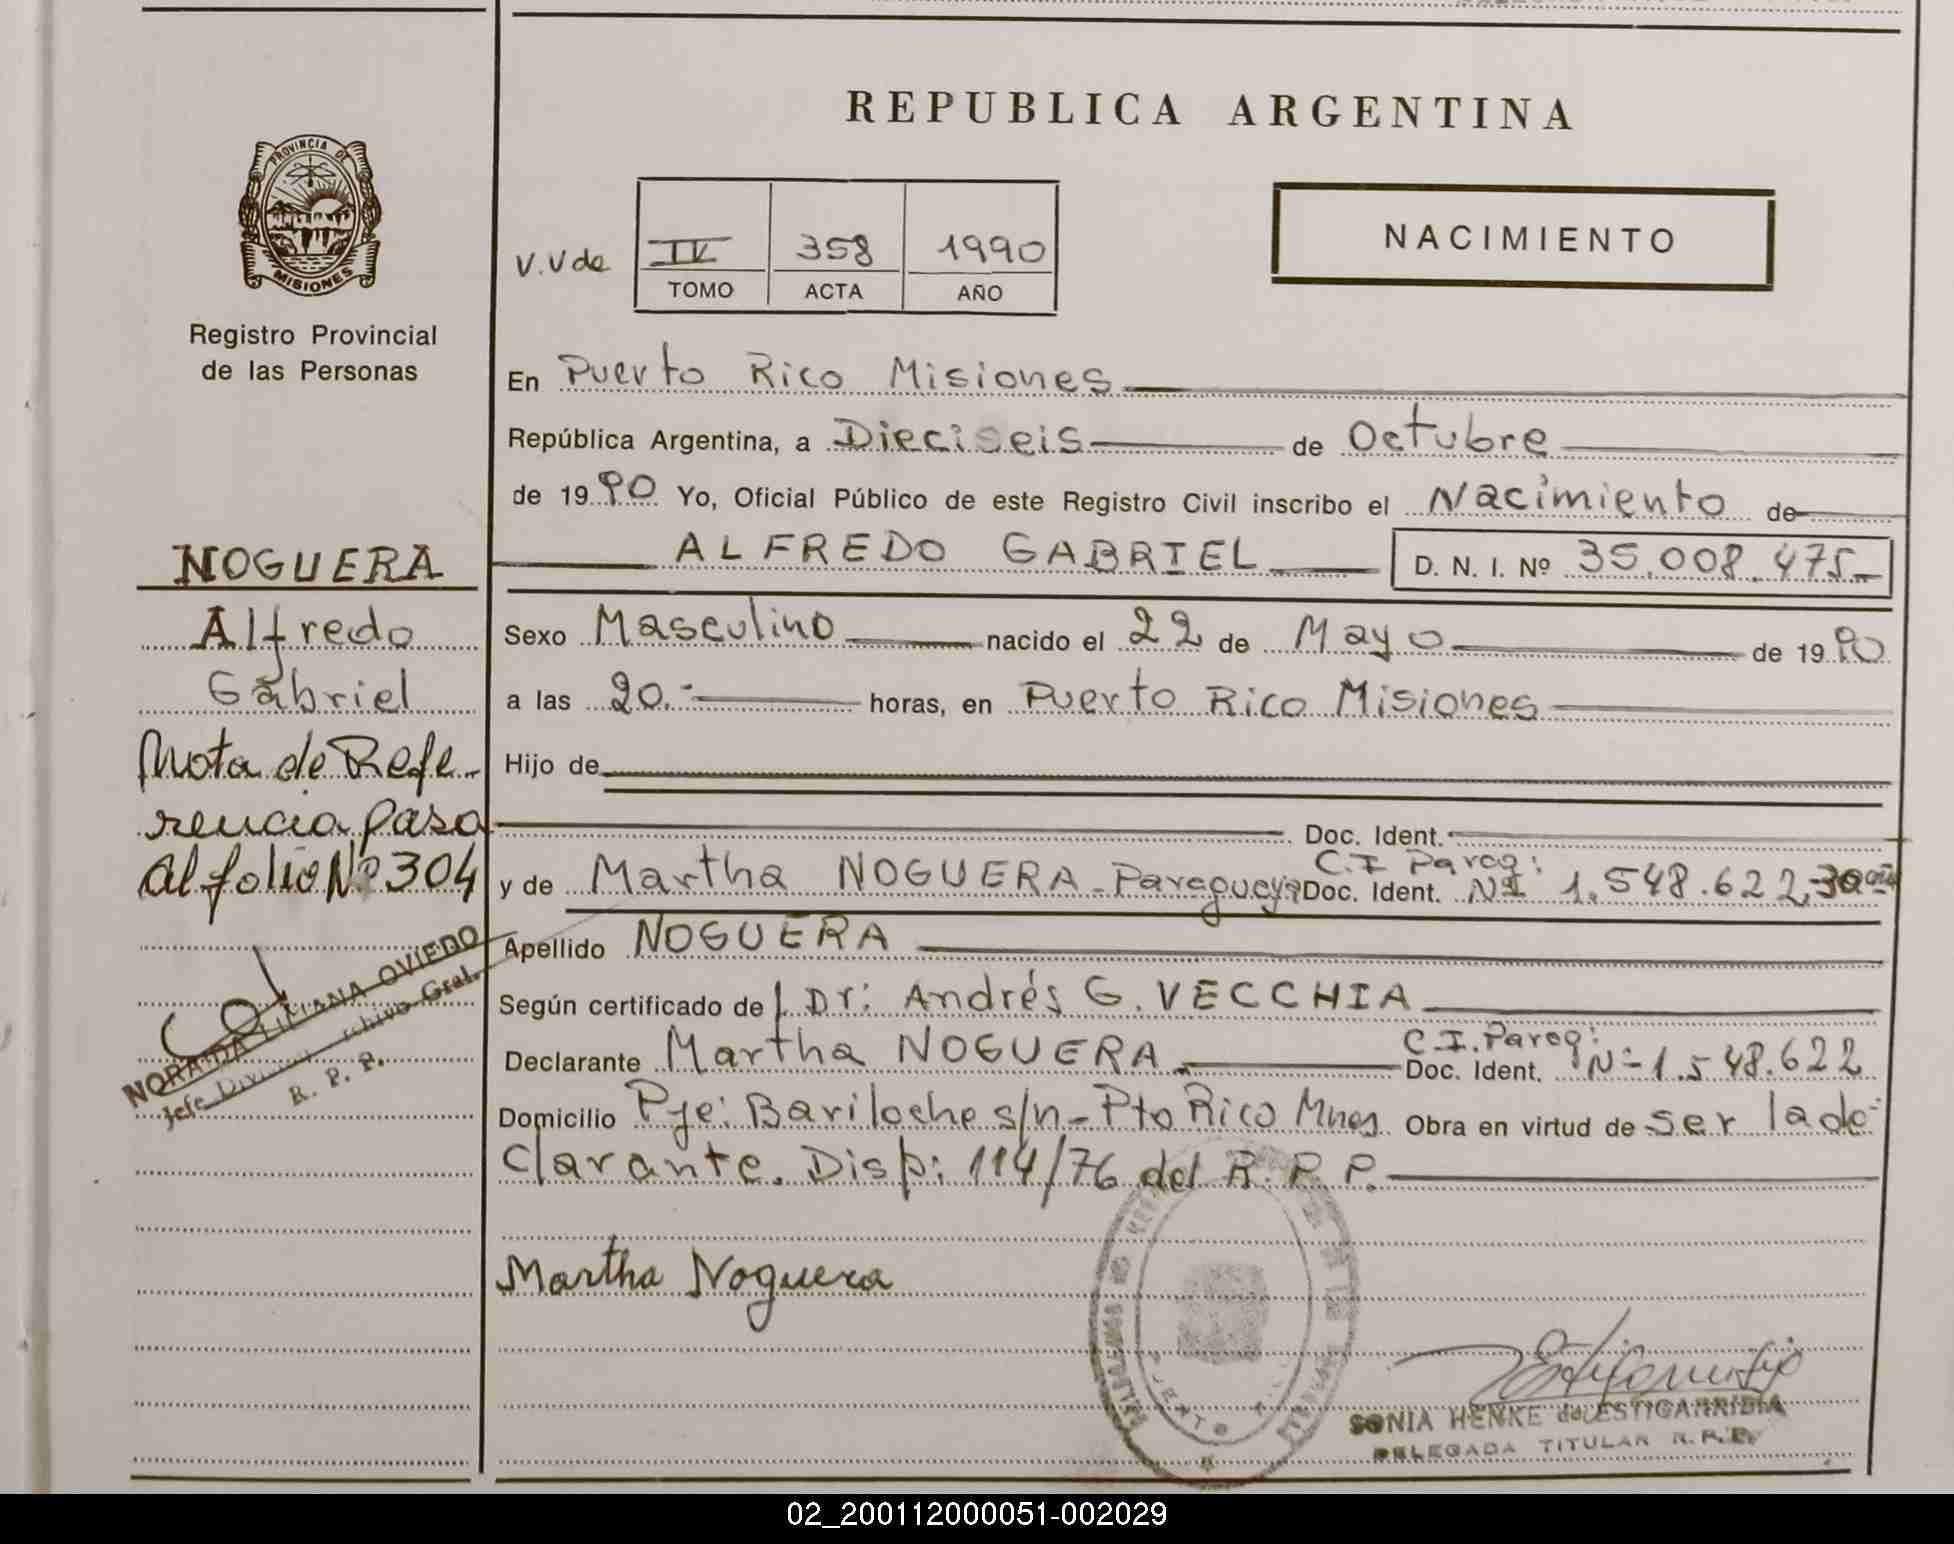 REPUBLICA ARGENTINA
PROVINCIA DE
MISIONES
Registro Provincial
de las Personas
V.V de
IV 358 1990
TOMO ACTA AÑO
NACIMIENTO
En Puerto Rico Misiones
República Argentina, a Dieciseis de Octubre
de 1990 Yo, Oficial Público de este Registro Civil inscribo el Nacimiento de
ALFREDO GABRIEL D. N. I. Nº 35.008.475
Sexo Masculino nacido el 22 de Mayo de 1990
a las 20.- horas, en Puerto Rico Misiones
Hijo de
Doc. Ident.
C.I Parag:
y de Martha NOGUERA - Paraguaya Doc. Ident. Nº 1.548.622, 30 años
Apellido NOGUERA
Según certificado de Dr: Andrés G. VECCHIA
C.I. Parag:
Declarante Martha NOGUERA Doc. Ident. Nº 1.548.622
Domicilio Pje: Bariloche s/n - Pto Rico Mnes Obra en virtud de ser la de
clarante. Disp: 114/76 del R. P. P.
Martha Noguera
SONIA HENKE de ESTIGARRIBIA
DELEGADA TITULAR R.P.P.
NOGUERA
Alfredo
Gabriel
Nota de Refe-
rencia pasa
al folio Nº 304
NORA IDA LILIANA OVIEDO
Jefe División Archivo Gral.
R. P. P.
02_200112000051-002029